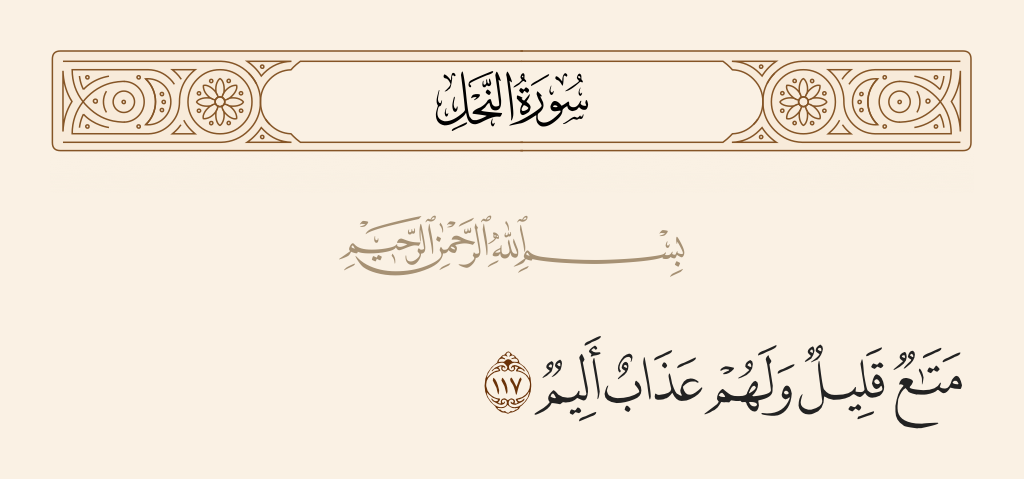 سُورَةُ النَّحْلِ
بِسْمِ ٱللَّهِ ٱلرَّحْمَٰنِ ٱلرَّحِيمِ
مَتَـٰعٌۭ قَلِيلٌۭ وَلَهُمْ عَذَابٌ أَلِيمٌۭ ١١٧